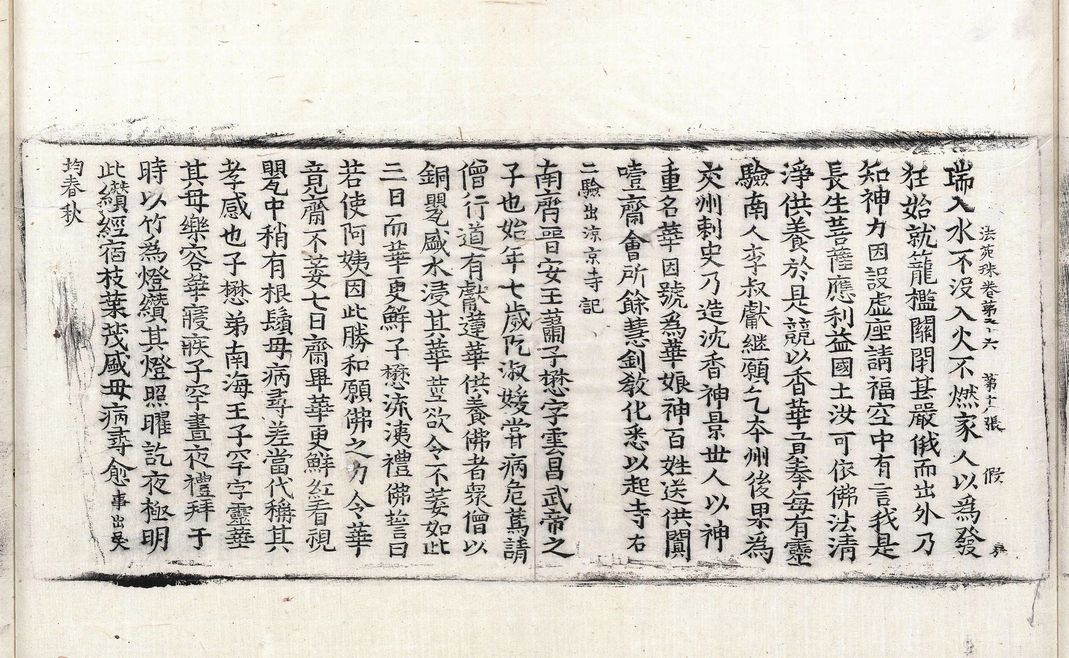 法苑珠卷第三十六 張 假
瑞入水不没入火不燃家人以為發
狂始就籠檻關閉甚嚴俄而出外乃
知神力因設虛座請福空中有言我是
長生菩薩應利益國土汝可依佛法清
淨供養於是競以香華貢奉每有靈
驗南人李叔獻継願乞夲州後果為
交州刺史乃造沈香神景世人以神
重名華因號為華娘神百姓送供闐
噎齋會所餘慧釗教化悉以起寺右
二驗出涼京寺記
南齊晉安王蕭子懋字雲昌武帝之
子也始年七歲阮淑媛甞病危篤請
僧行道有獻蓮華供養佛者衆僧以
銅甖盛水浸其華莖欲令不萎如此
三日而華更鮮子懋流涕禮佛誓曰
若使阿姨因此勝和願佛之力令華
竟齋不萎七日齋畢華更鮮紅看視
甖中稍有根鬚母病尋差當代稱其
孝感也子懋弟南海王子罕字靈華
其母樂容華寢疾子罕晝夜禮拜于
時以竹為燈纉其燈照曜訖夜極明
此纉經宿枝葉茂盛母病尋愈事出吳
均春秋